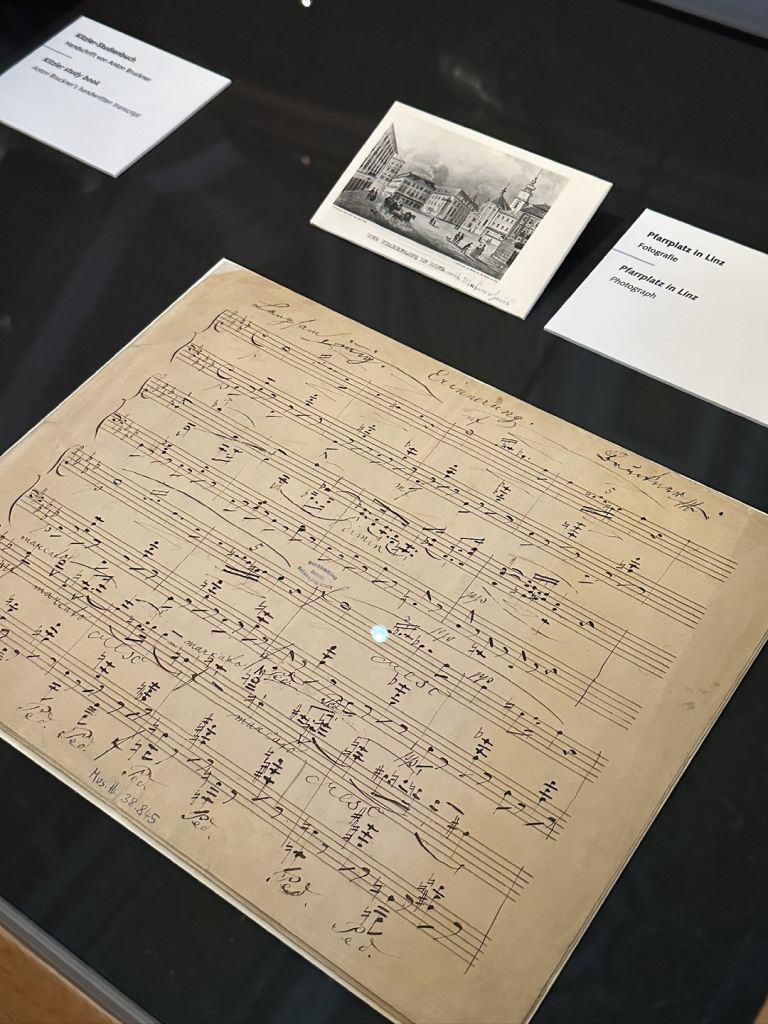 Kitzler-Studienbuch
Handschrift von Anton Bruckner
Kitzler study book
Anton Bruckner's handwritten transcript
DER PFARRPLATZ IN LINZ
Pfarrplatz in Linz
Fotografie
Pfarrplatz in Linz
Photograph
Langsam innig.
Erinnerung.
p
mf
p
mf
5
dimin
p
p
5
marcato
marcato
cresc
marcato
cresc
marcato
cresc
Ped.
Ped.
Ped.
Ped.
Ped.
Ped.
Mus. Hs. 38.845